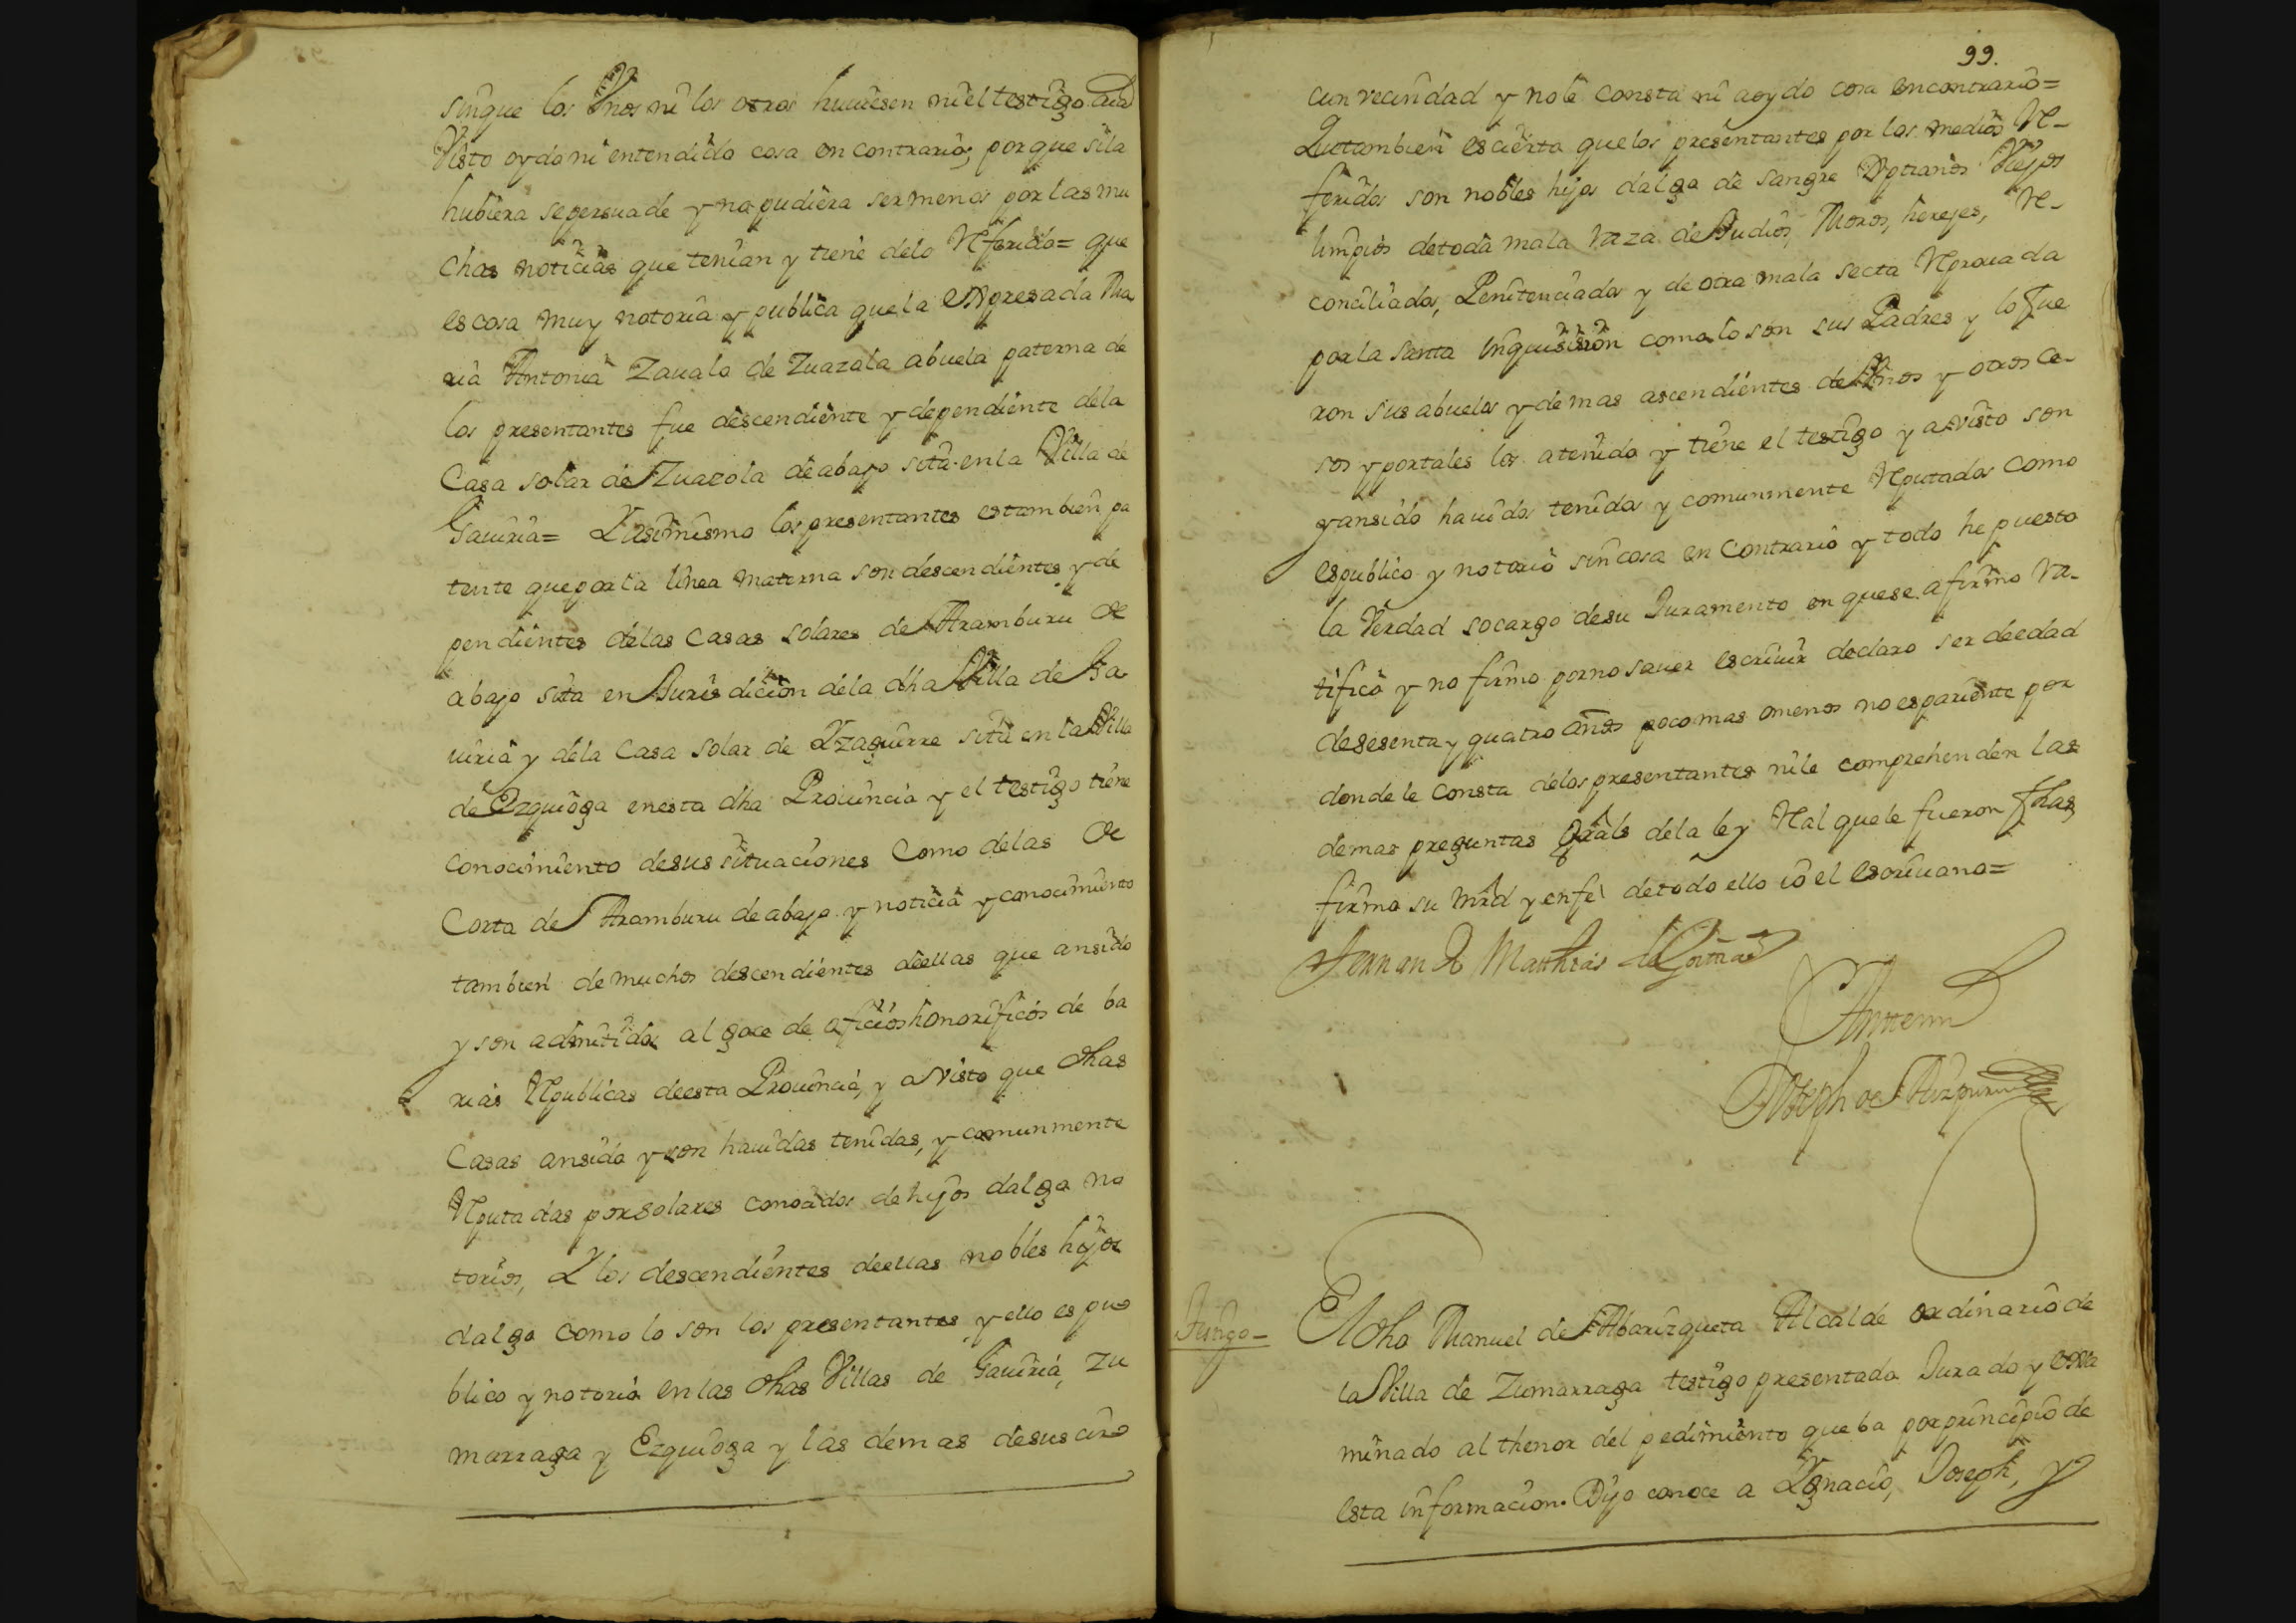 sin que los Vnos ni los otros huuiesen ni el testigo aia
Visto oydo ni entendido cosa en contrario; porque si la
hubiera se persuade y no pudiera ser menos por las mu
chas noticias que tenian y tiene delo Referido= que
es cosa muy notoria y publica que la expresada Ma
ria Antonia Zauala de Zuazola abuela paterna de
los presentantes fue descendiente y dependiente dela
Casa solar de Zuazola de abajo sita en la Villa de
Gauiria= Y asimismo los presentantes es tambien pa
tente que por la linea materna son descendientes y de
pendientes delas Casas solares de Aramburu de
abajo sita en Jurisdicion dela dha Villa de Ga
uiria y dela Casa solar de Yzaguirre sita en la Villa
de Ezquioga en esta dha Prouincia y el testigo tiene
conocimiento de sus situaciones Como delas de
Corta de Aramburu de abajo y noticia y conocimiento
tambien de muchos descendientes de ellas que an sido
y son admitidos al goce de oficios honorificos de ba
rias Republicas de esta Prouincia, y a Visto que dhas
Casas an sido y son hauidas tenidas, y comunmente
Reputadas por solares conocidos de hijos dalgo no
torios, Y los descendientes de ellas nobles hijos
dalgo como lo son los presentantes y ello es pu
blico y notorio en las dhas Villas de Gauiria, Zu
marraga y Ezquioga y las demas de su cir
99.
cun vecindad y no le consta ni a oydo cosa en contrario=
Que tambien es cierto que los presentantes por los medios Re-
feridos son nobles hijos dalgo de sangre Xptianos Viejos
limpios de toda mala raza de Judios, Moros, herejes, Re-
conciliados, Penitenciados y de otra mala secta Reprouada
por la santa Inquisision como lo son sus Padres y lo fue
ron sus abuelos y demas ascendientes de Vnos y otros ce-
sos y por tales los a tenido y tiene el testigo y a visto son
y an sido hauidos tenidos y comunmente Reputados como
es publico y notorio sin cosa en Contrario y todo he puesto
la Verdad so cargo de su Juramento en que se afirmo ra-
tifico y no firmo por no sauer escriuir declaro ser de edad
de sesenta y quatro años poco mas o menos no es pariente por
donde le consta delos presentantes ni le comprehenden las
demas preguntas Grals dela ley Real que le fueron fhas
firmo su mrd y en fe de todo ello io el escriuano=
Matthias de
Antemi
Joseph de Aizpuru
Testigo-
El dho Manuel de Abarizqueta Alcalde ordinario de
la Villa de Zumarraga testigo presentado Jurado y exa
minado al thenor del pedimiento que ba por principio de
esta informacion. Dijo conoce a Ygnacio, Joseph, y